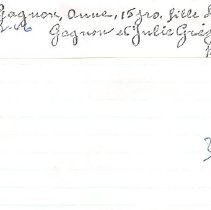 Gagnon, Anne, 15 jro. fille d
Gagnon et Julie Grég
3